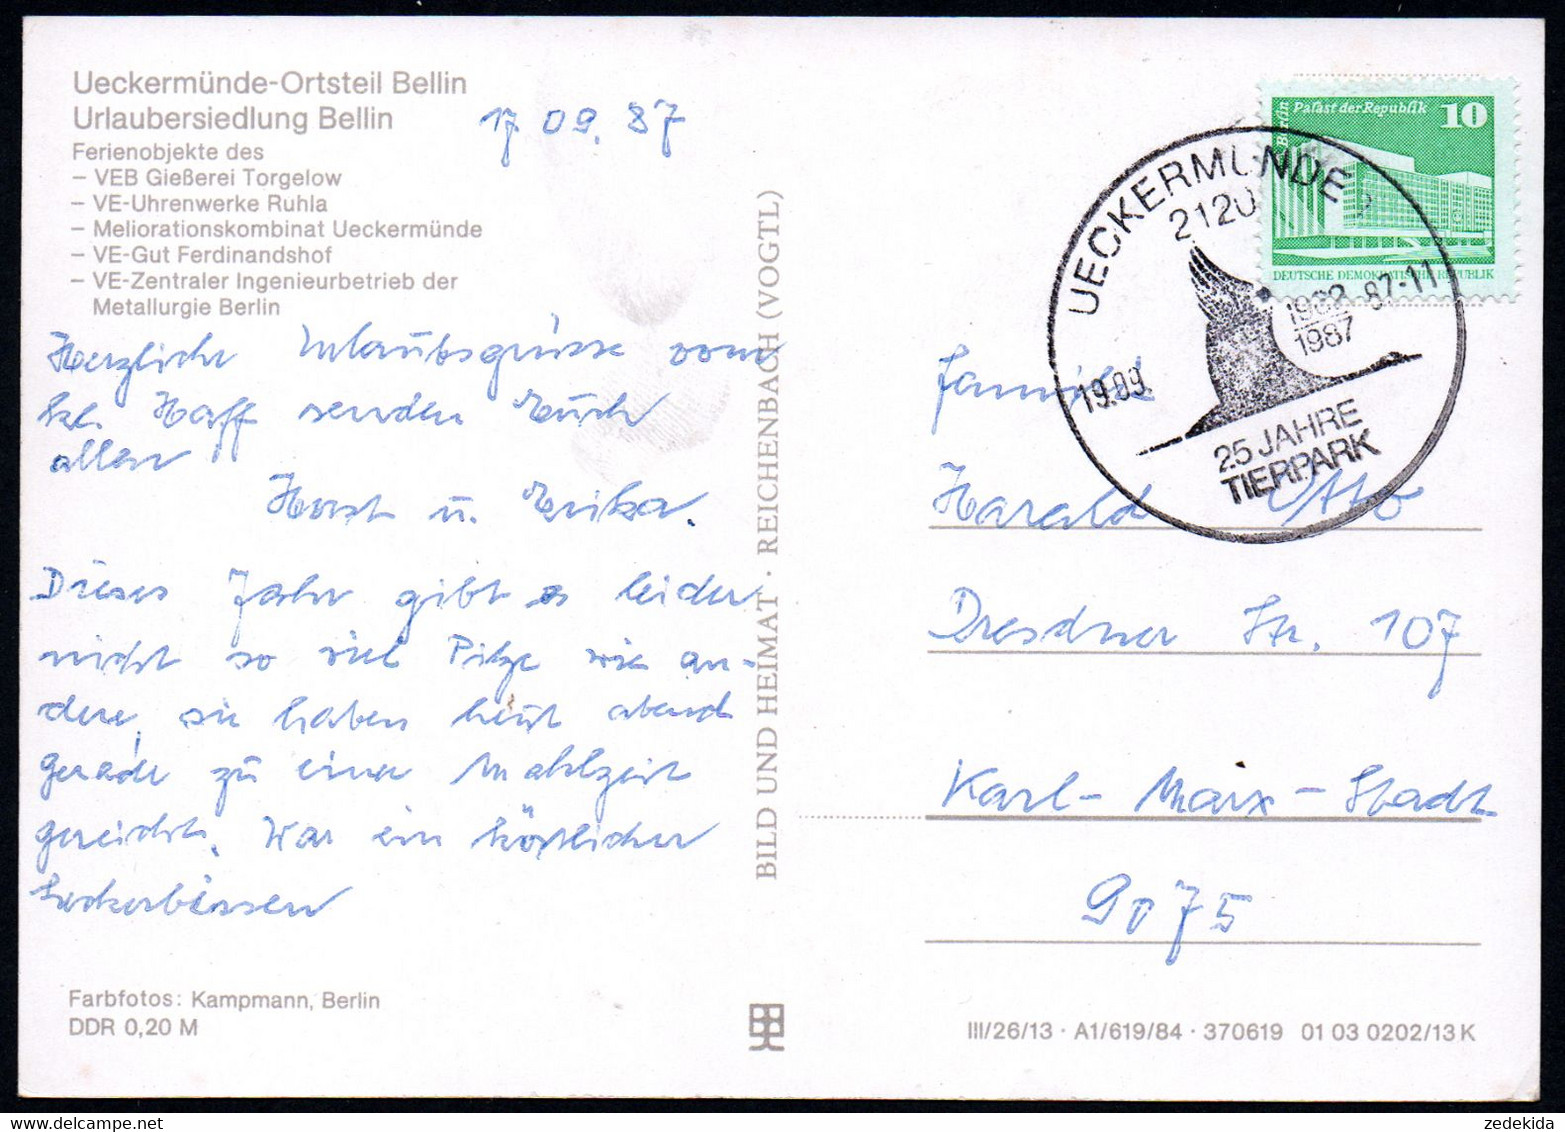 Ueckermünde-Ortsteil Bellin
Urlaubersiedlung Bellin
Ferienobjekte des
– VEB Gießerei Torgelow
– VE-Uhrenwerke Ruhla
– Meliorationskombinat Ueckermünde
– VE-Gut Ferdinandshof
– VE-Zentraler Ingenieurbetrieb der
Metallurgie Berlin
17 09. 87
Herzliche Urlaubsgrüsse vom
kl. Haff senden Euch
allen
Horst u. Erika.
Dieses Jahr gibt es leider
nicht so viel Pilze wie an-
dere, sie haben heut abend
gerade zu einer Mahlzeit
gereicht. War ein köstlicher
Leckerbissen
Farbfotos: Kampmann, Berlin
DDR 0,20 M
BILD UND HEIMAT · REICHENBACH (VOGTL)
Berlin
Palast der Republik
10
DEUTSCHE DEMOKRATISCHE REPUBLIK
UECKERMÜNDE
2120
1962
1987
19.09.
87-11
25 JAHRE
TIERPARK
Familie
Harald Otto
Dresdner Str. 107
Karl-Marx-Stadt
9075
III/26/13 · A1/619/84 · 370619 01 03 0202/13 K
zedekida